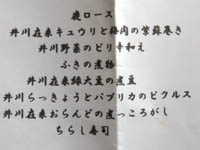 鹿ロース
井川在来キュウリと梅肉の紫蘇巻き
井川野菜のピリ辛和え
ふきの煮物
井川在来緑大豆の煮豆
井川らっきょうとパプリカのピクルス
井川在来おらんどの煮っころがし
ちらし寿司